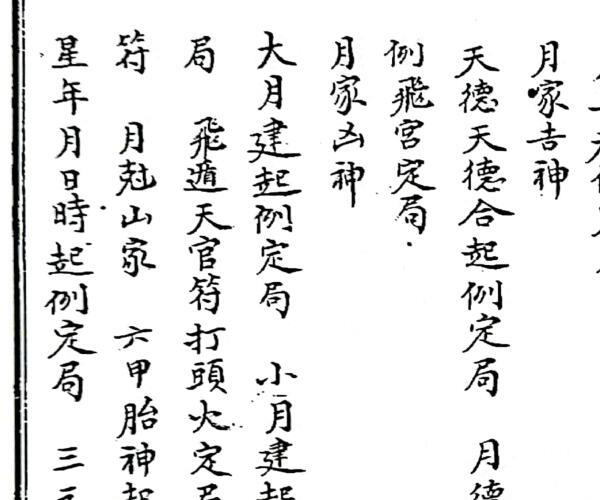 月家吉神
天德天德合起例定局　月德
例飛宮定局
月家凶神
大月建起例定局　小月建起
局　飛遁天官符打頭火定局
符　月尅山家　六甲胎神起
星年月日時起例定局　三元